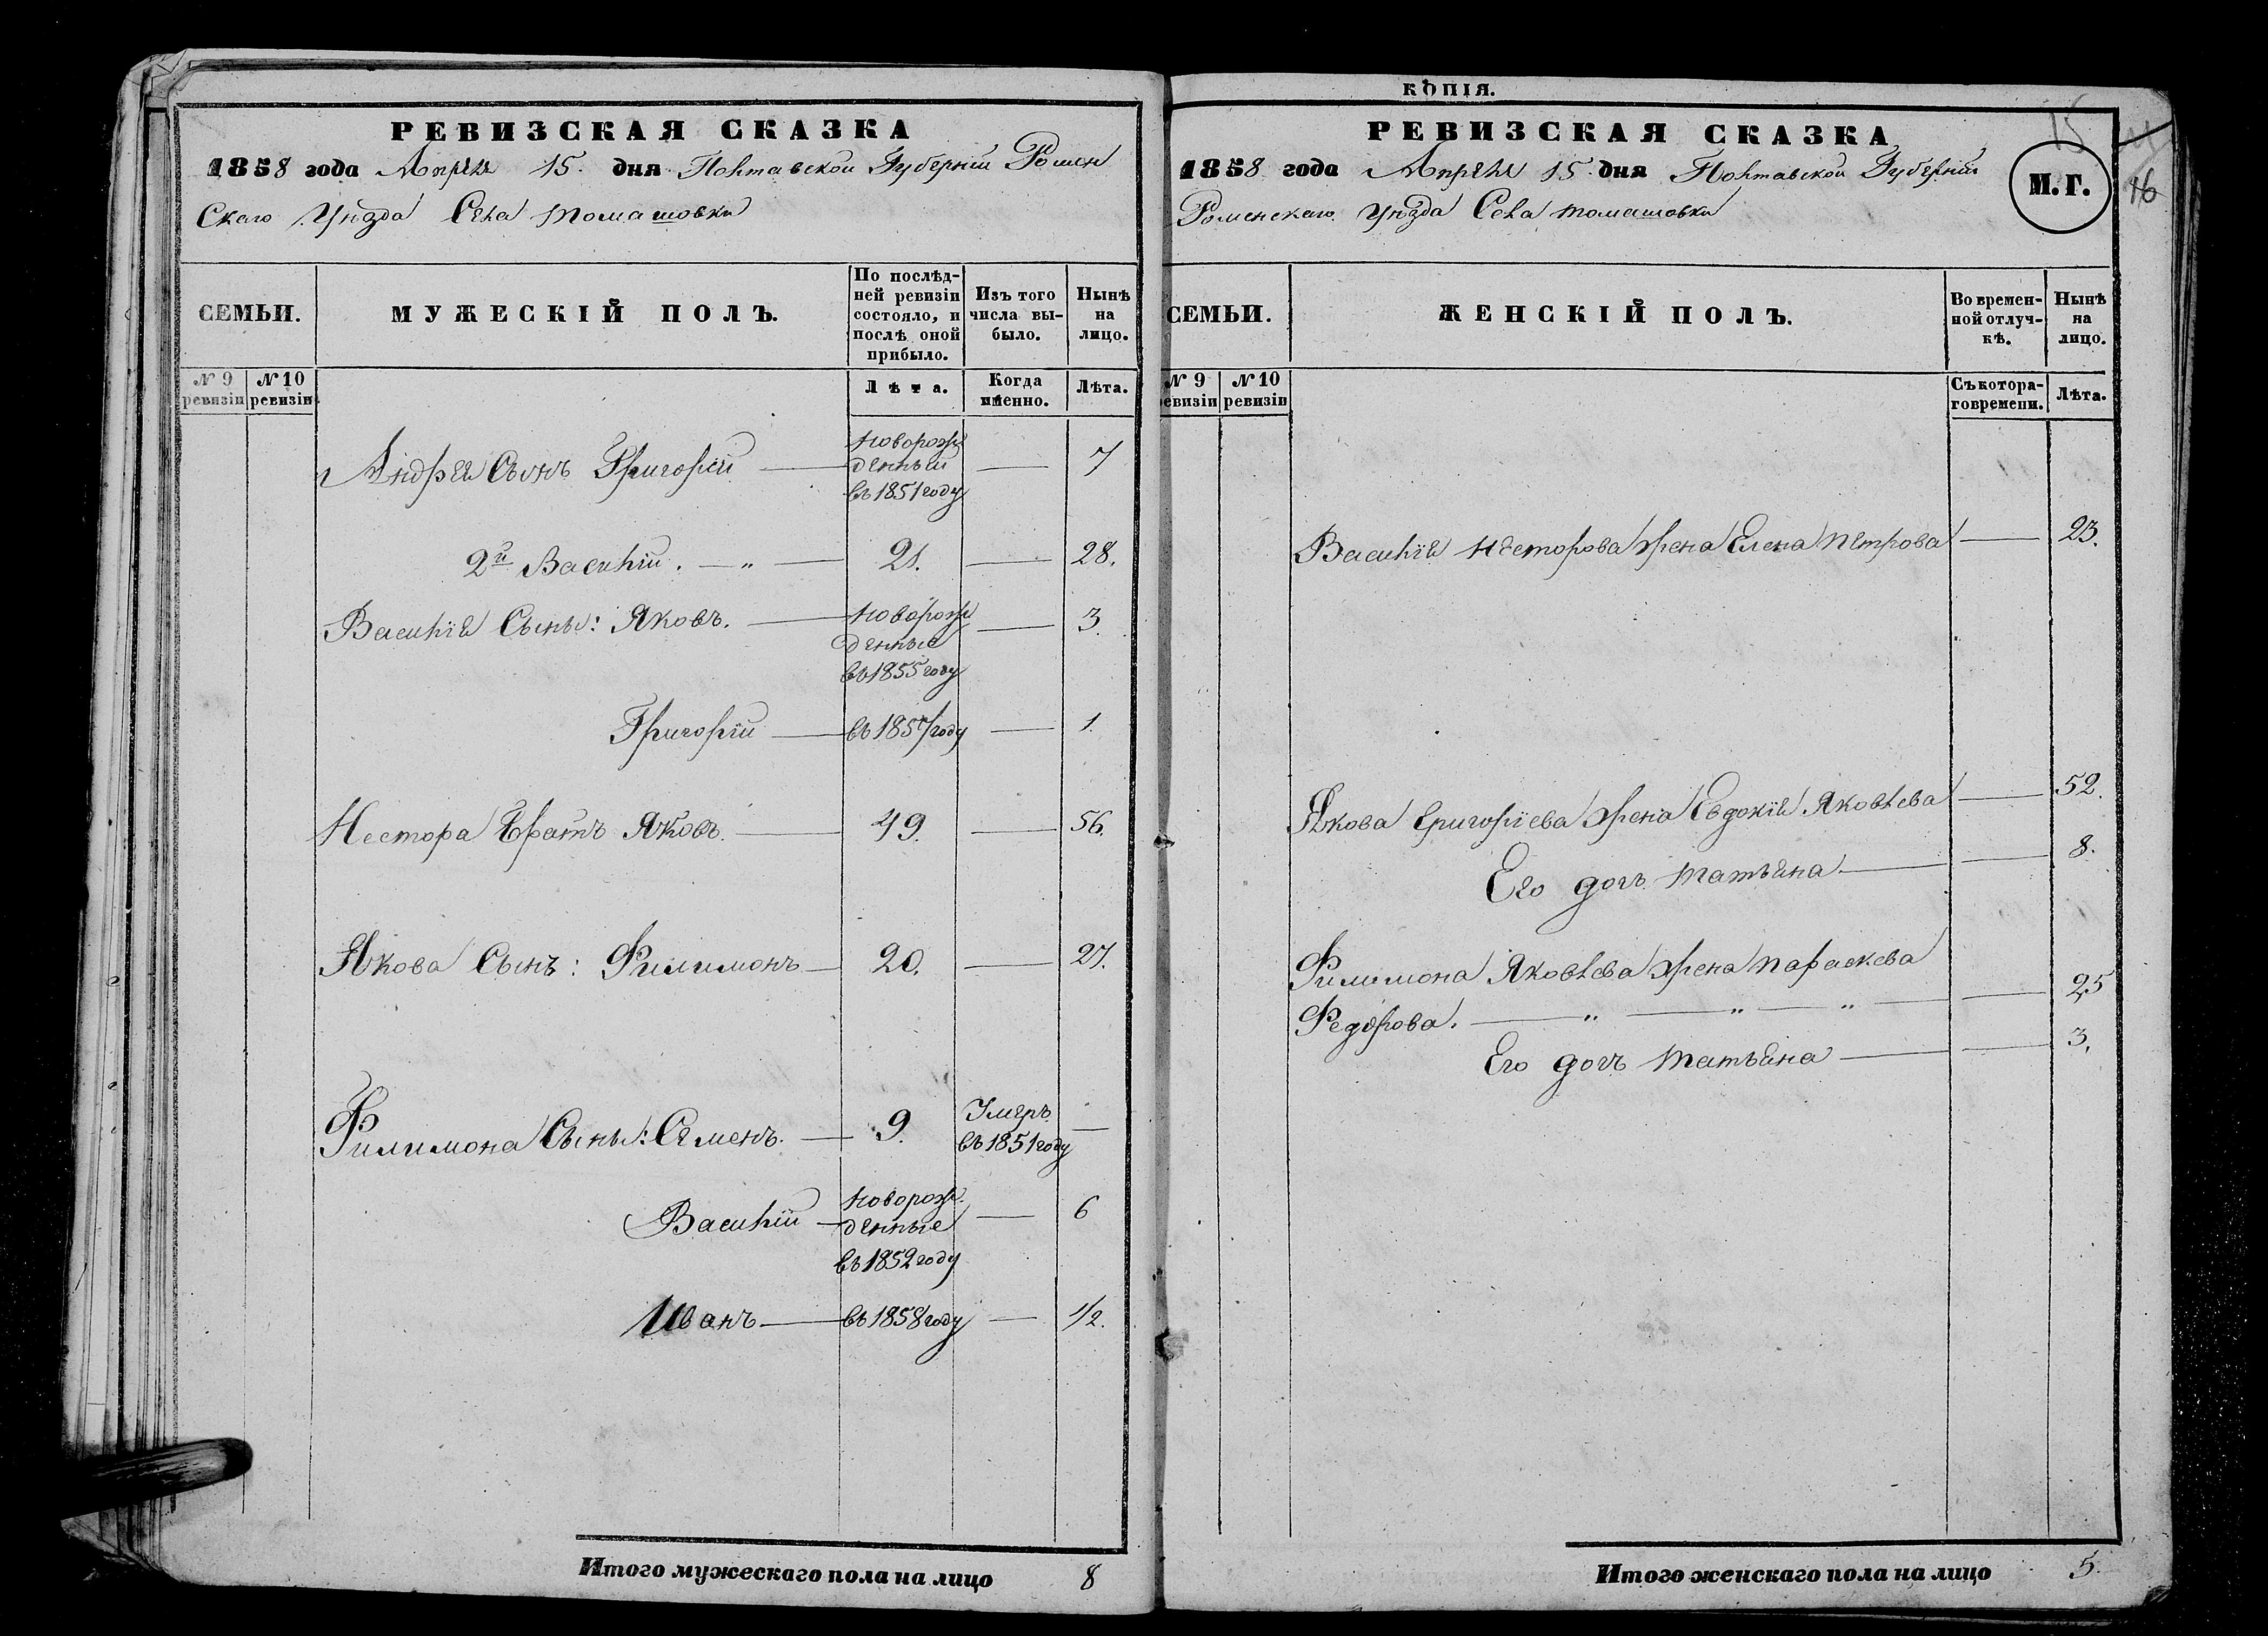 РЕВИЗСКАЯ СКАЗКА
1858 года Апреля 15. дня Полтавской Губерніи Ромен
скаго Уѣзда Села Томашовки
СЕМЬИ.
МУЖЕСКІЙ ПОЛЪ.
По послѣд-
ней ревизіи
состояло, и
послѣ оной
прибыло.
Изъ того
числа вы-
было.
Нынѣ
на
лицо.
№ 9
ревизіи
№ 10
ревизіи
Лѣта.
Когда
именно.
Лѣта.
Андрея Сынъ Григорій
Новорож
денный
въ 1851 году
7
2й Василій. — „ —
21.
28.
Василія Сыны: Яковъ.
Новорож
денные
въ 1855 году
3.
Григорій
въ 1857 году
1.
Нестора Братъ Яковъ.
49.
56.
Якова Сынъ: Филимонъ
20.
27.
Филимона Сыны: Семенъ.
9.
Умеръ
въ 1851 году
—
Василій
Новорож
денные
въ 1852 году
6
Иванъ
въ 1858 году
1/2.
Итого мужескаго пола на лицо 8
КОПІЯ.
РЕВИЗСКАЯ СКАЗКА
15
16
1858 года Апреля 15. дня Полтавской Губерніи
Роменскаго Уѣзда Села Томашовки
М.Г.
СЕМЬИ.
ЖЕНСКІЙ ПОЛЪ.
Во времен-
ной отлуч-
кѣ.
Нынѣ
на
лицо.
№ 9
ревизіи
№ 10
ревизіи
Съ котора-
го времени.
Лѣта.
Василія Несторова жена Елена Петрова — 23.
Якова Григоріева жена Евдокія Яковлева — 52.
Его дочь Татьяна — 8.
Филимона Яковлева жена Параскева
Федорова. — „ — „ — „ — 25
Его дочь Татьяна — 3.
Итого женскаго пола на лицо 5.